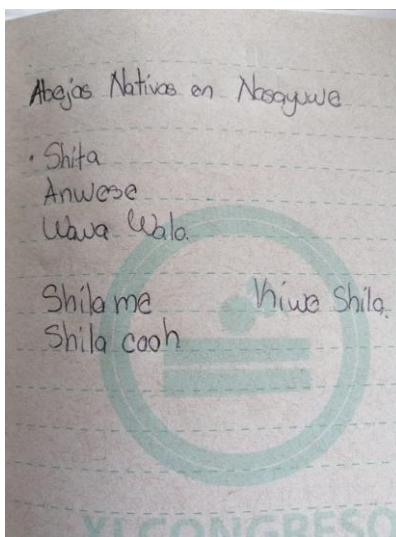 Abejas Nativas en Nasayuwe
· Shita
Anwese
Wawa Wala.
Shila me
Khiwe Shila.
Shila cooh
XI CONGRESO